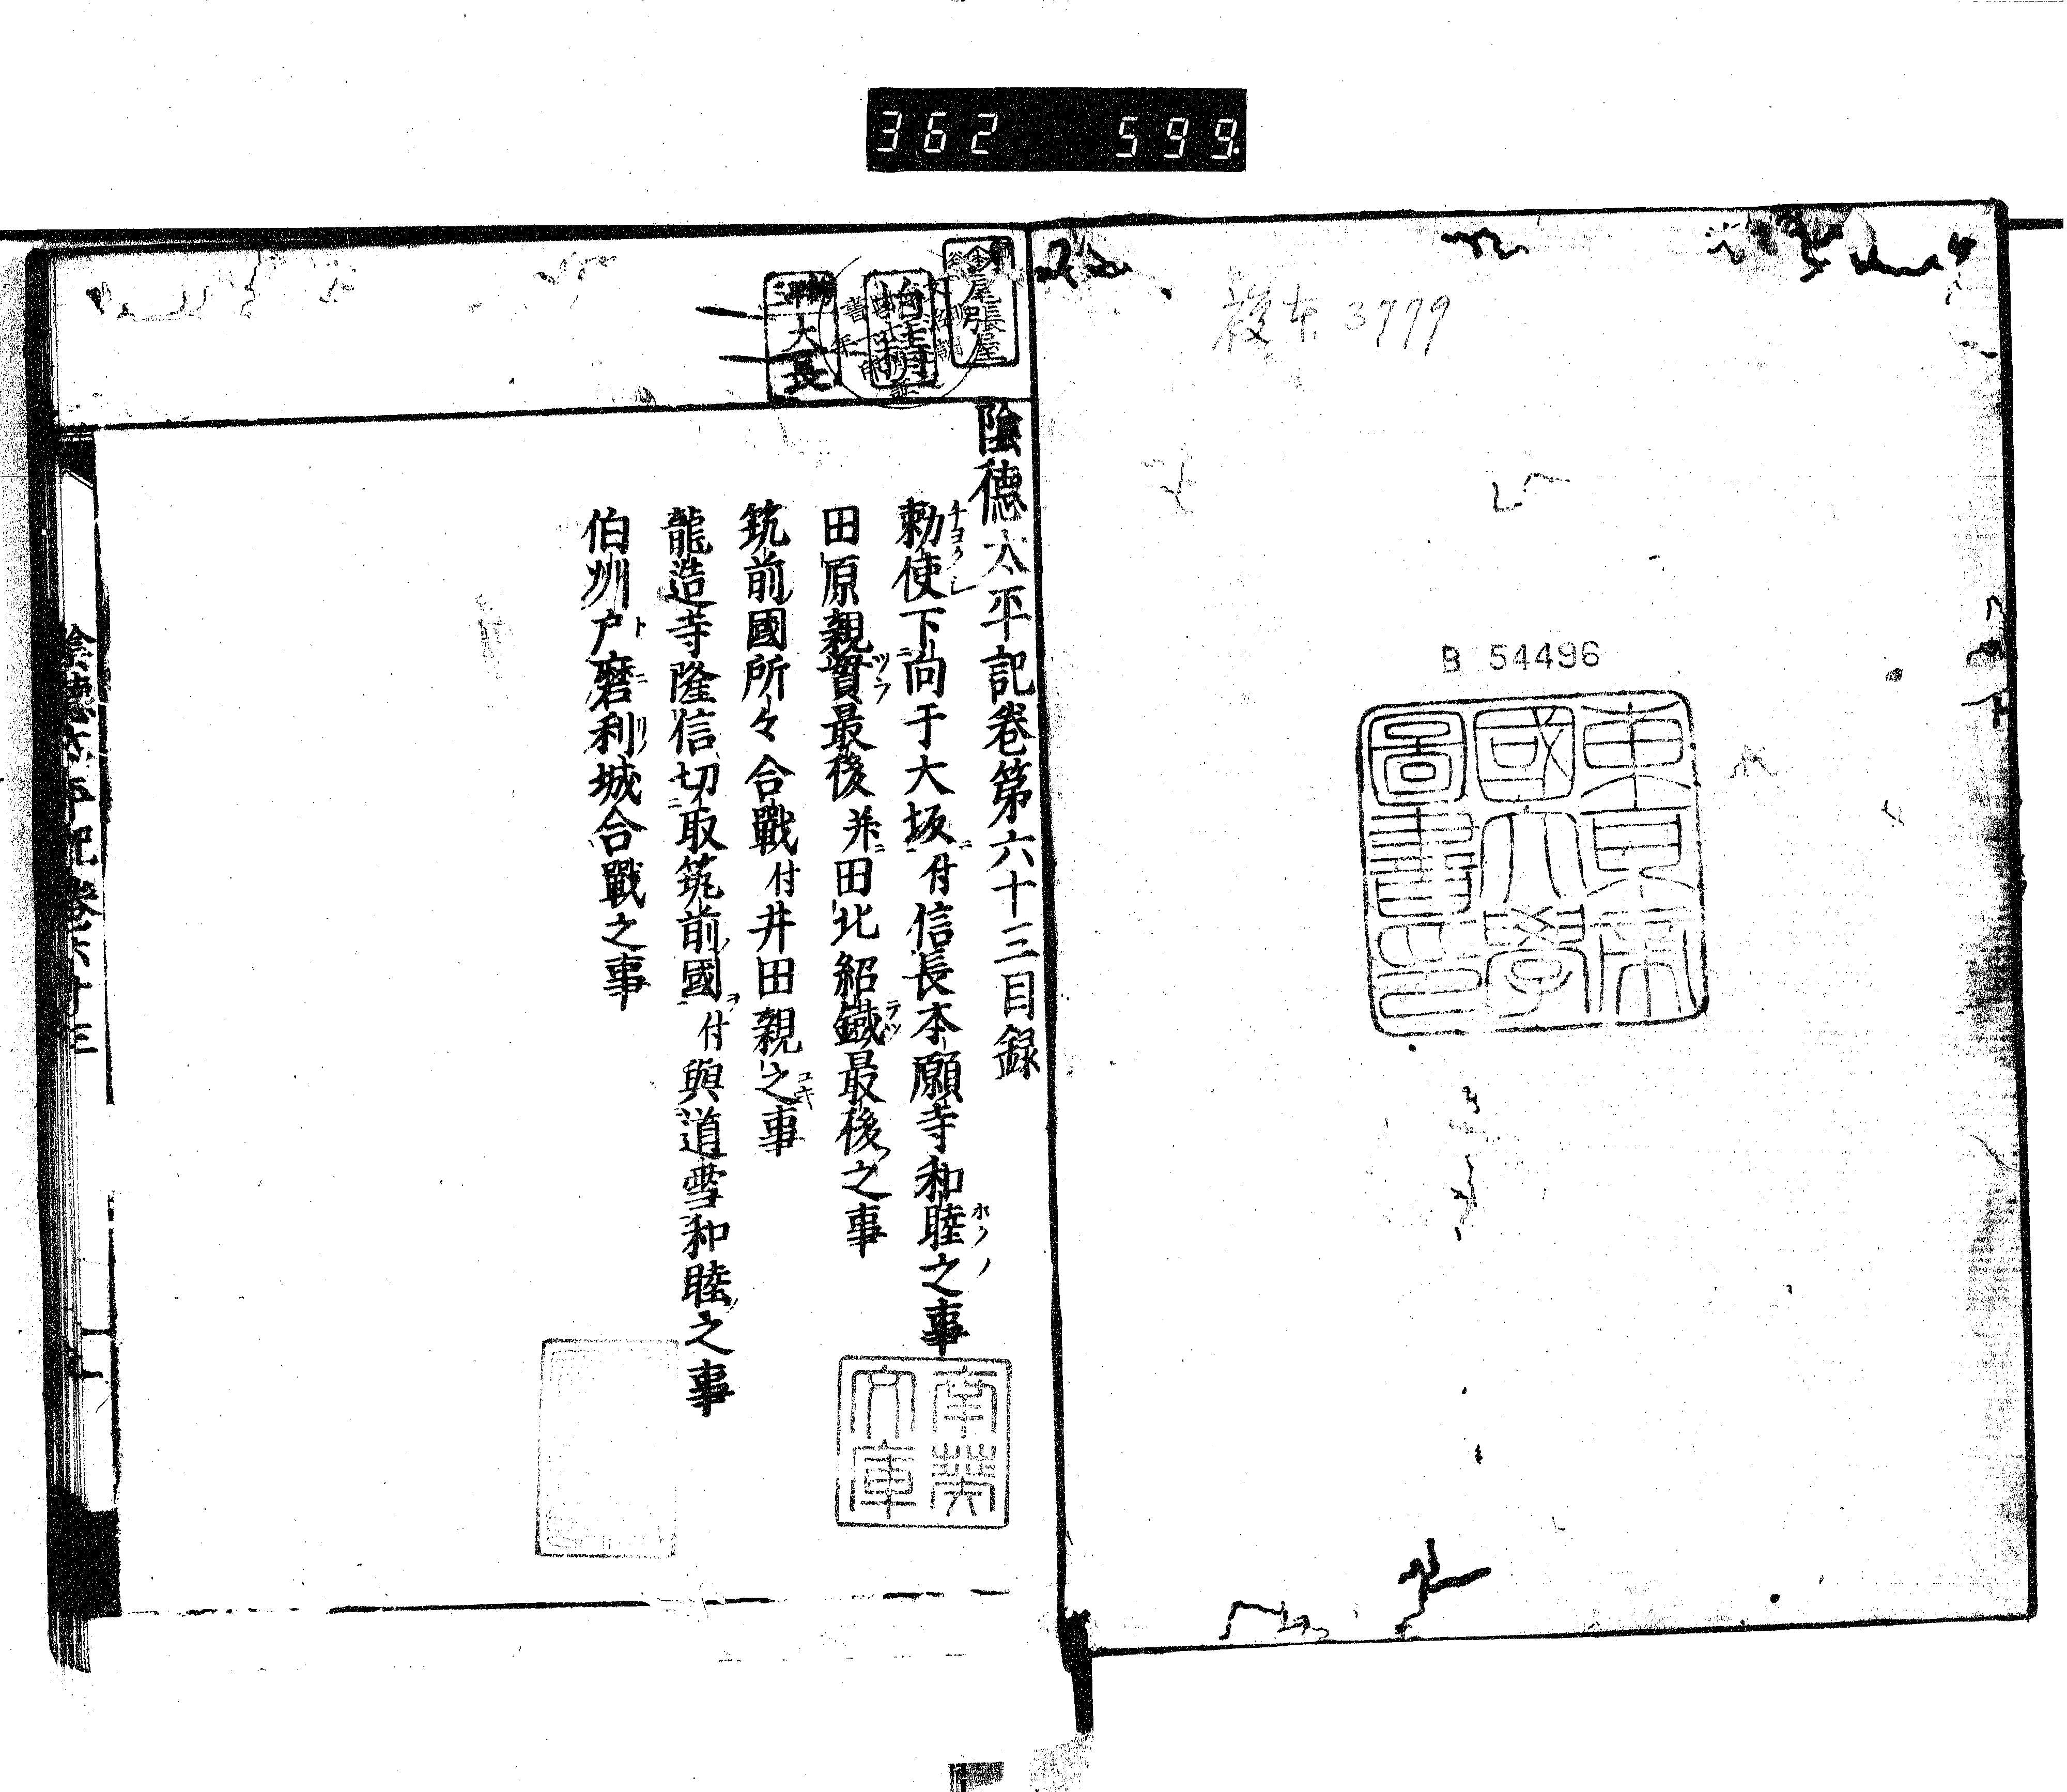 362 599
複本 3779
B 54496
東京帝
國大學
圖書印
尾張屋
大長
陰德太平記卷第六十三目録
勅使下向于大坂付信長本願寺和睦之事
田原親貫最後并田北紹鐵最後之事
筑前國所々合戰付井田親之事
龍造寺隆信切取筑前國付與道雪和睦之事
伯州戸磨利城合戰之事
南葵
文庫
陰德太平記卷六十三